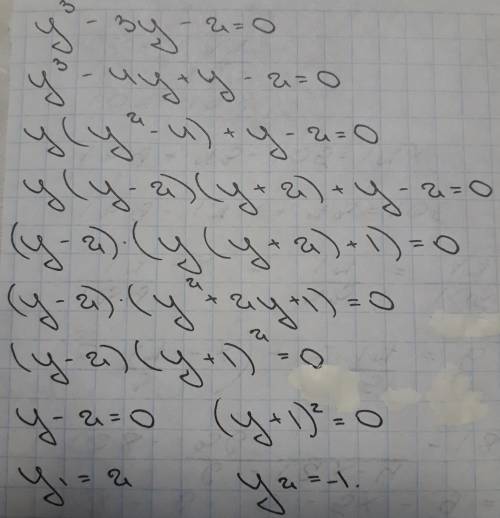 y³ - 3y - 2 = 0
y³ - 4y + y - 2 = 0
y(y² - 4) + y - 2 = 0
y(y - 2)(y + 2) + y - 2 = 0
(y - 2)·(y(y + 2) + 1) = 0
(y - 2)·(y² + 2y + 1) = 0
(y - 2)(y + 1)² = 0
y - 2 = 0 (y + 1)² = 0
y₁ = 2 y₂ = -1.